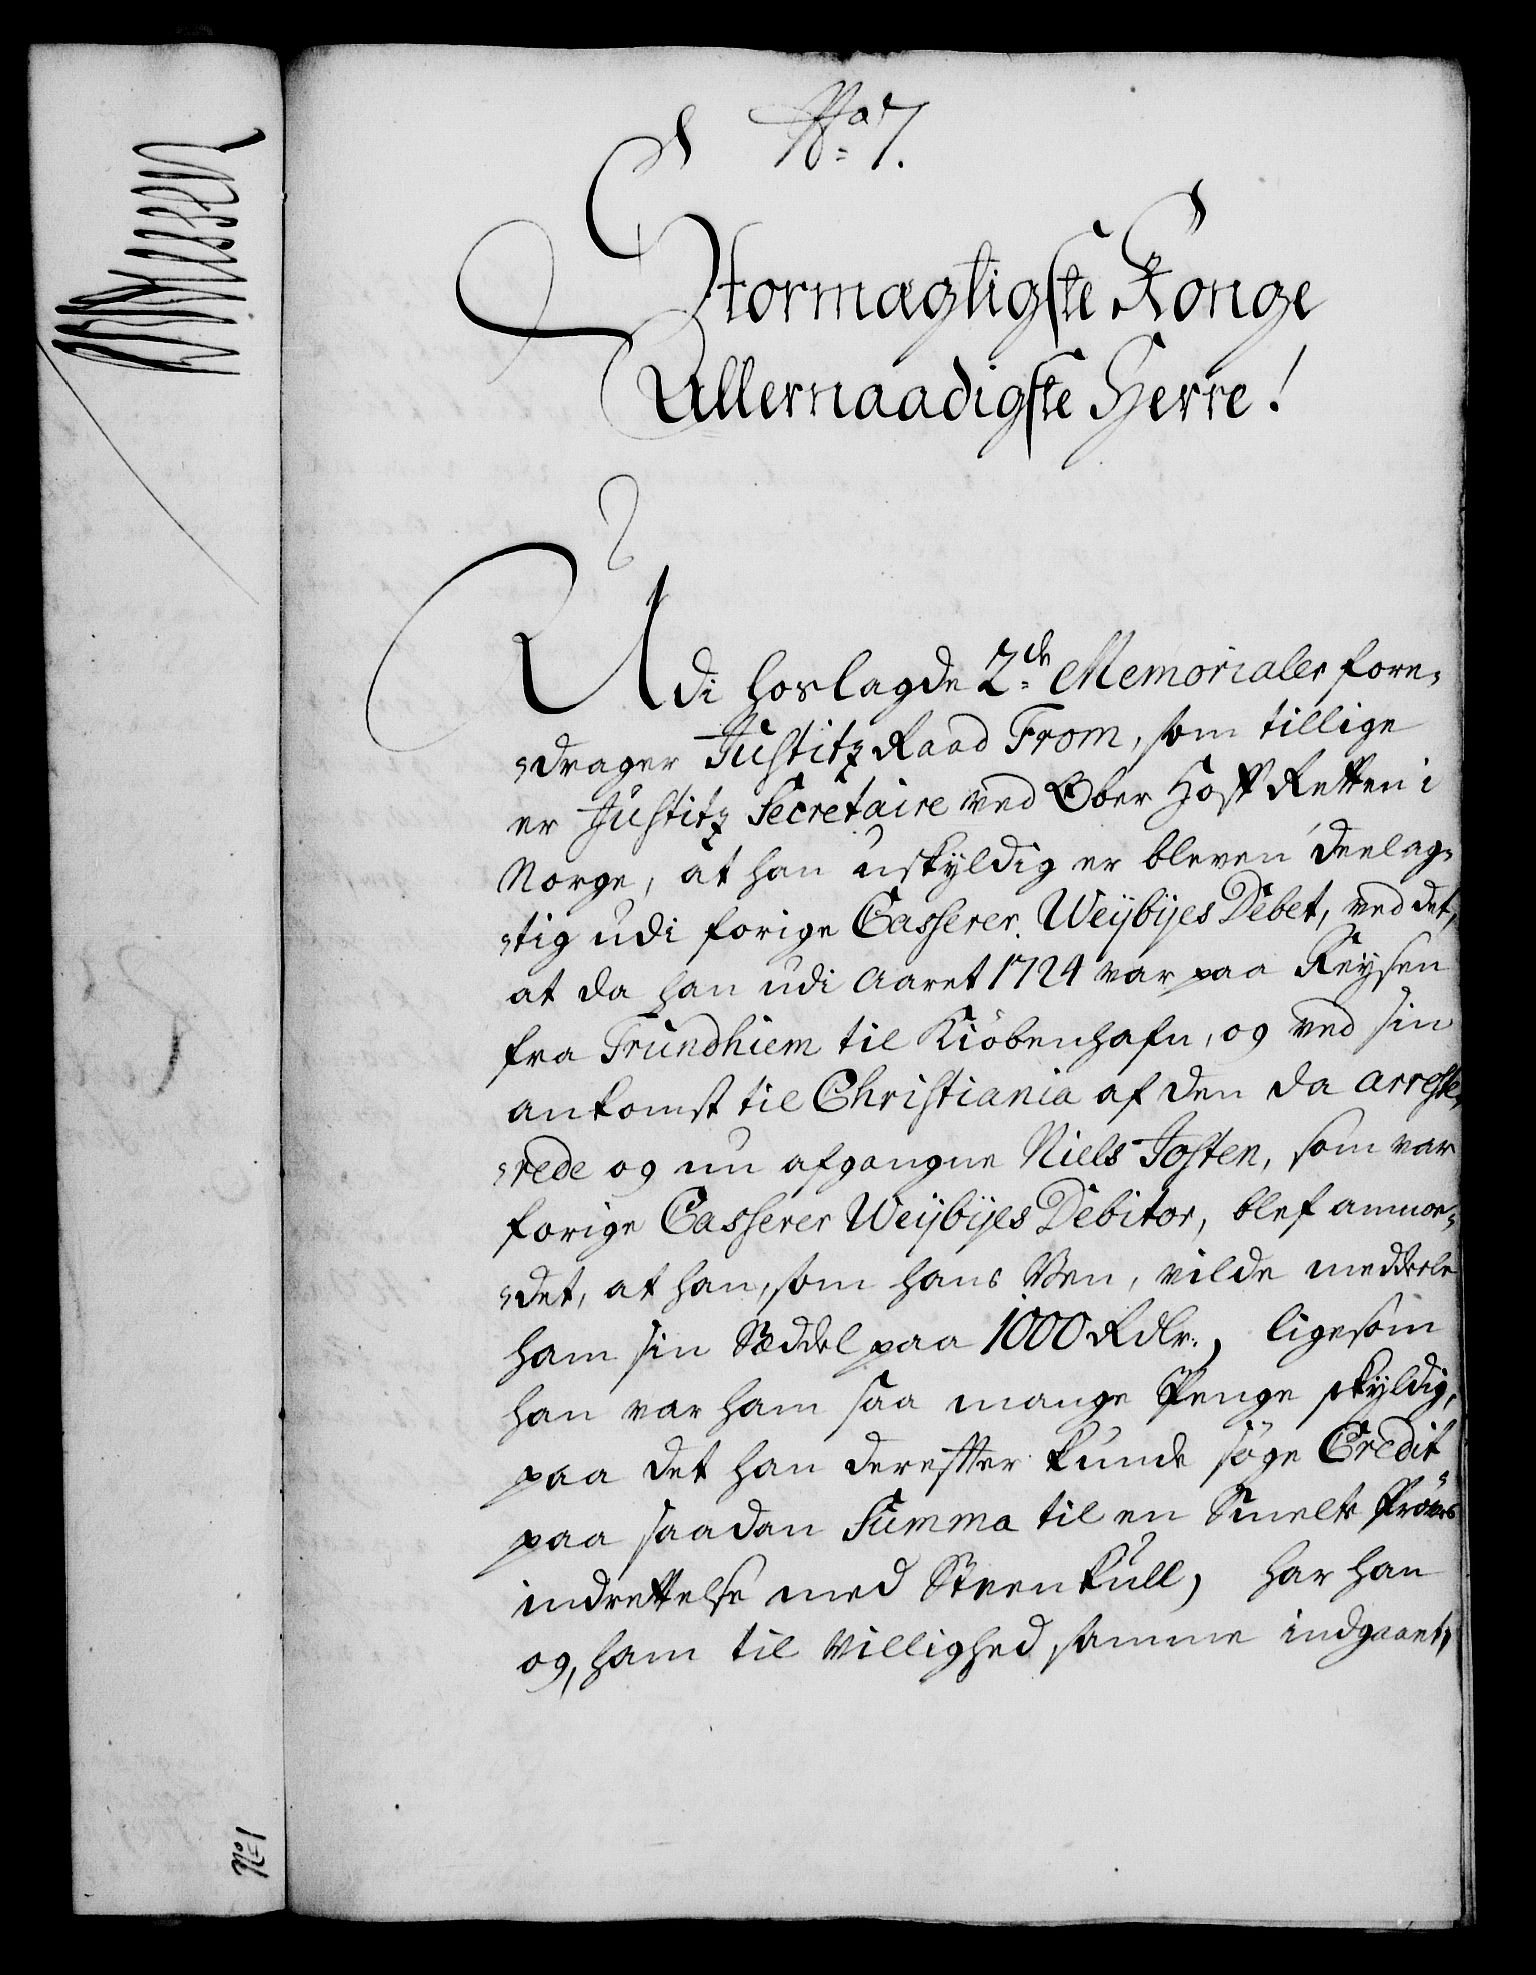 No 7.
Stormægtigste Konge
Allernaadigste Herre!
Udi hoslagde 2de Memorialer fore-
drager Justitz Raad From, som tillige
er Justitz Secretaire ved Ober Hoff Retten i
Norge, at han uskyldig er bleven deelag-
tig udi forige Casserer Weijbijes Debet, ved det,
at da han udi Aaret 1724 var paa Reysen
fra Trundhiem til Kiöbenhafn, og ved sin
ankomst til Christiania af den da arreste-
rede og nu afgangne Niels Josten, som var
forige Casserer Weijbijes Debitor, blef anmo-
det, at han, som hans Ven, vilde meddeele
ham sin Sæddel paa 1000 Rdlr., ligesom
han var ham saa mange Penge skyldig,
paa det han derefter kunde söge Credit
paa saadan Summa til en Smelte Pröves
indrettelse med Steenkull, har han
og, ham til Villighed, samme indgaaet,
No 1